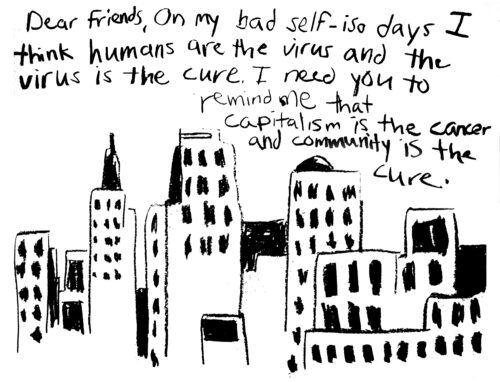 Dear Friends, On my bad self-iso days I
think humans are the virus and the
virus is the cure. I need you to
remind me that
capitalism is the cancer
and community is the
cure.